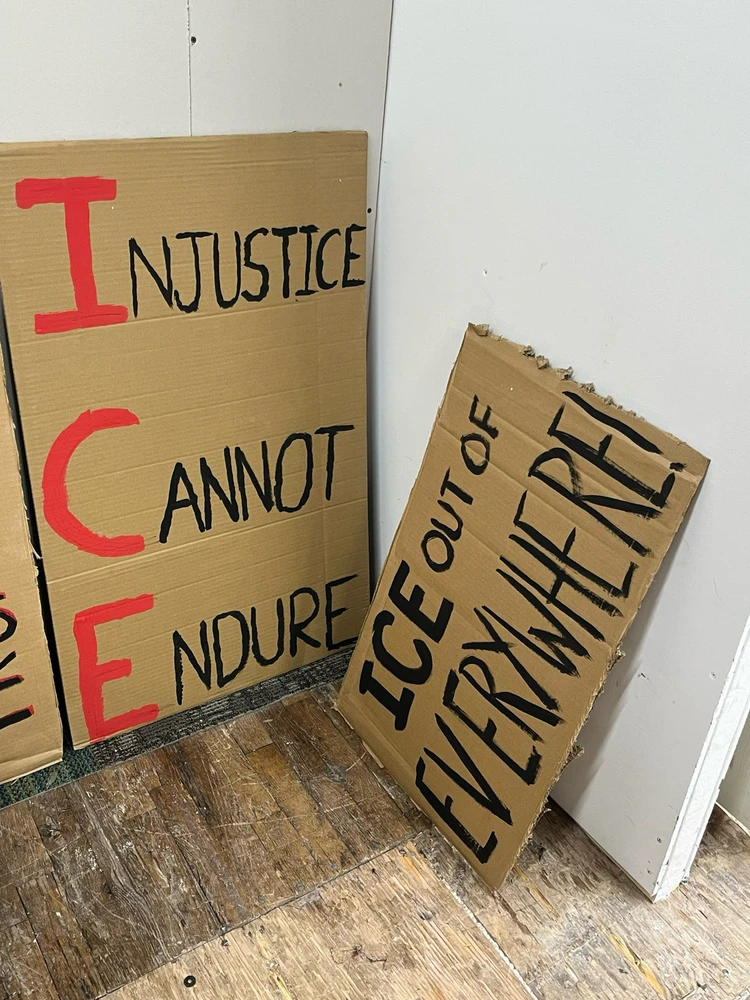 INJUSTICE
CANNOT
ENDURE
ICE OUT OF
EVERYWHERE!